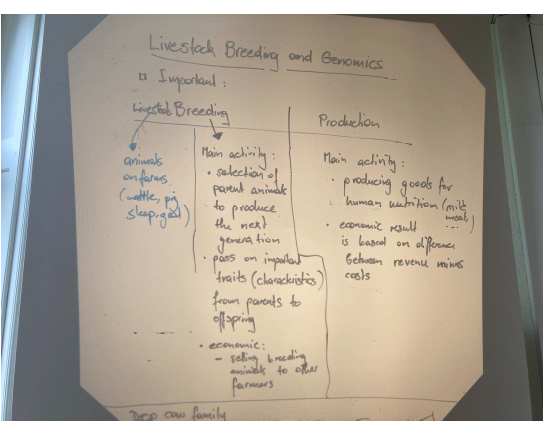 Livestock Breeding and Genomics
□ Important:
Livestock Breeding
animals
on farms
(cattle, pig
sheep, goat)
Main activity:
• selection of
parent animals
to produce
the next
generation
• pass on important
traits (characteristics)
from parents to
offspring
• economic:
- selling breeding
animals to other
farmers
Production
Main activity:
• producing goods for
human nutrition (milk,
meat,
...
• economic result
is based on difference
between revenue minus
costs
cow family